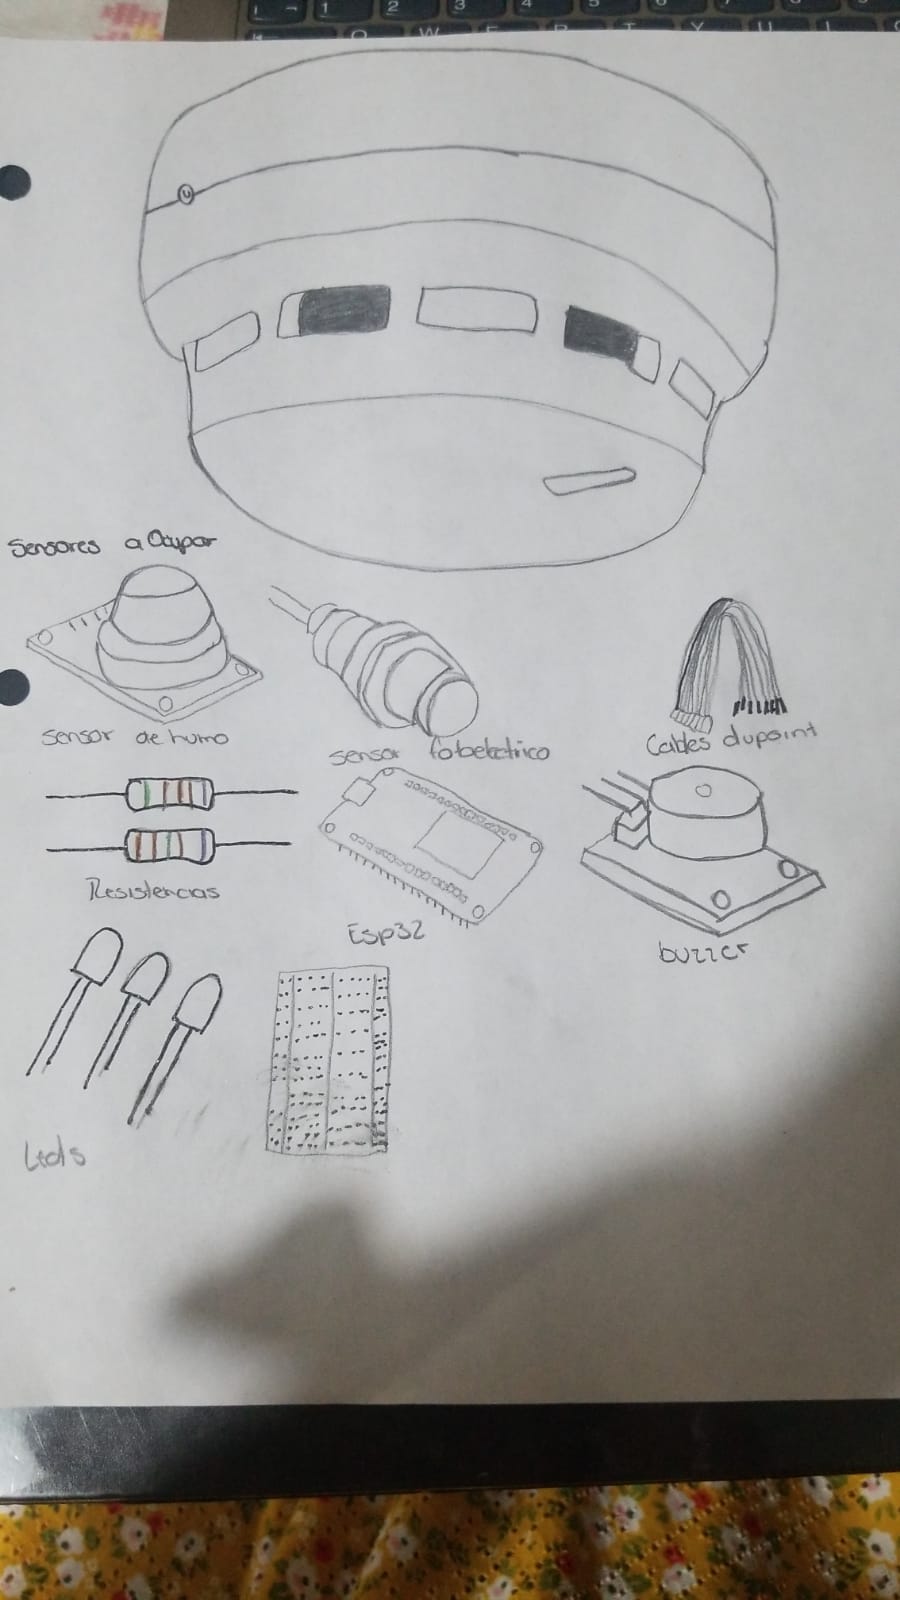 Sensores a Ocupar
Sensor de humo
Sensor fotoelectrico
Cables dupoint
Resistencias
Esp32
buzzer
Leds